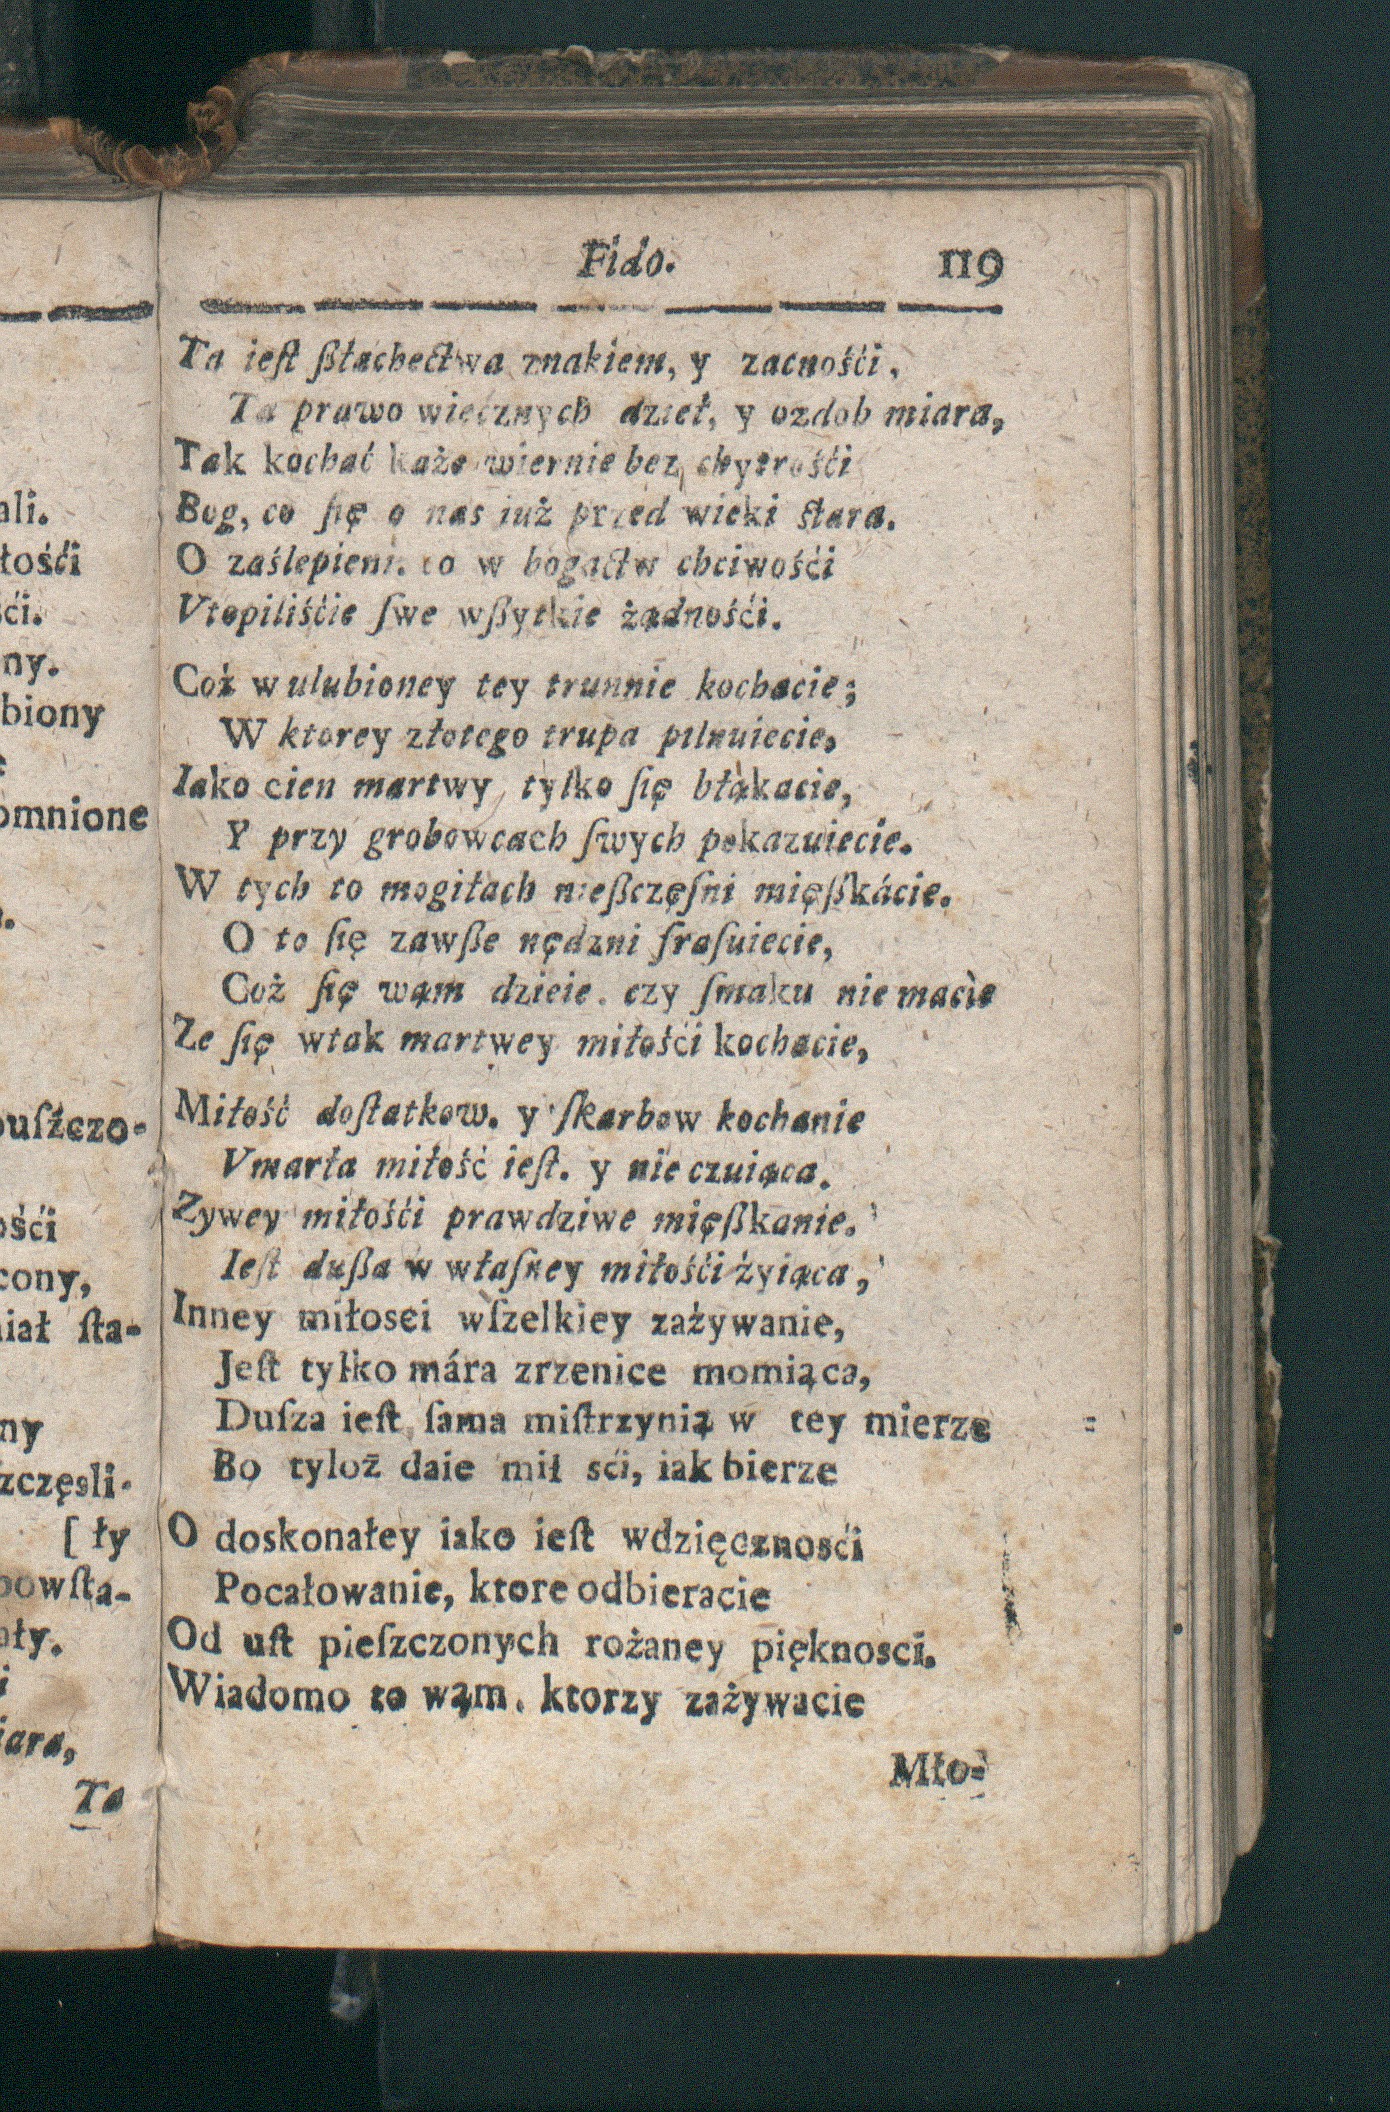 ali.
łośći
śći.
ny.
biony
omnione
puſzczo-
ośći
cony,
iał ſta-
ny
zczęsli-
[ ły
powſta-
ały.
iara,
Ta
Fido. 119
Ta ieſt ßłachectwa znakiem, y zacnośći,
Ta prawo wiecznych dzieł, y ozdob miara,
Tak kochać każe wiernie bez chytrośći
Bog, co ſię o nas iuż przed wieki ſtara.
O zaślepieni. co w bogactw chciwośći
Vtopiliśćie ſwe wßytkie żądnośći.
Coż w ulubioney tey trunnie kochacie;
W ktorey złotego trupa pilnuiecie,
Iako cien martwy tylko ſię błąkacie,
Y przy grobowcach ſwych pokazuiecie.
W tych to mogiłach nießczęſni mięßkácie.
O to ſię zawße nędzni fraſuiecie,
Coż ſię wąm dzieie. czy ſmaku nie macie
Ze ſię wtak martwey miłośći kochacie,
Miłość doſtatkow. y ſkarbow kochanie
Vmarła miłość ieſt. y nie czuiąca.
Zywey miłośći prawdziwe mięßkanie.
Ieſt dußa w właſney miłośći żyiąca,
Inney miłosci wſzelkiey zażywanie,
Jeſt tylko mára zrzenice momiąca,
Duſza ieſt ſama miſtrzynią w tey mierze
Bo tyloż daie mił sći, iak bierze
O doskonałey iako ieſt wdzięcznosći
Pocałowanie, ktore odbieracie
Od uſt pieſzczonych rożaney pięknosci.
Wiadomo to wąm. ktorzy zażywacie
Mło-